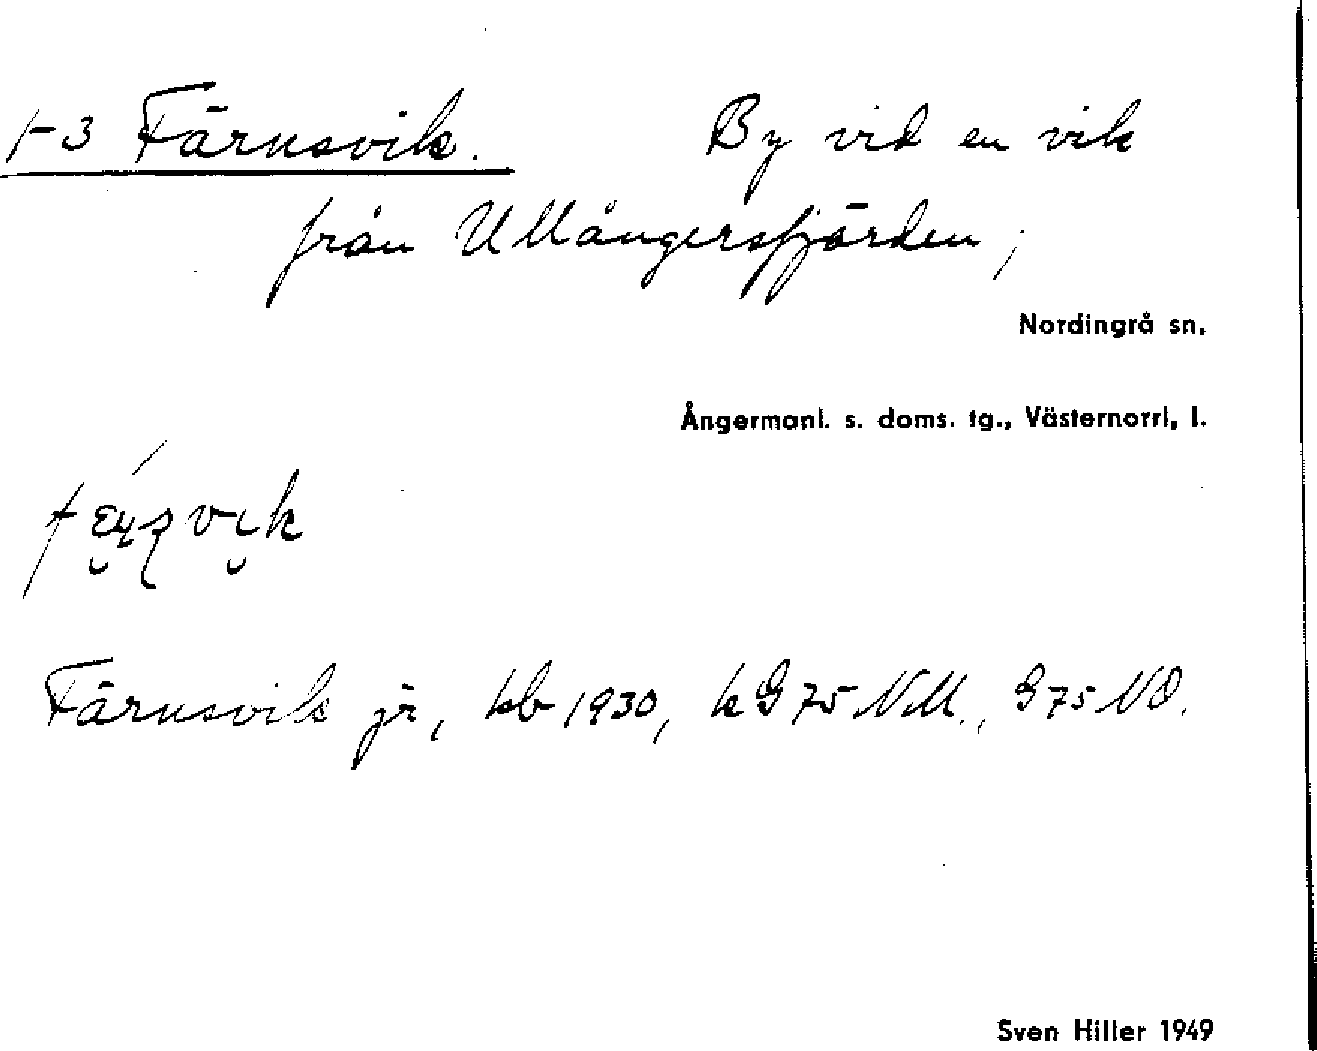 1-3 Färnsvik. By vid en vik
från Ullångersfjärden,
Nordingrå sn.
Ångermanl. s. doms. tg., Västernorrl. l.
Färnsvik jr, kb 1930, k G 75 NM., G 75 NO.
Sven Hiller 1949